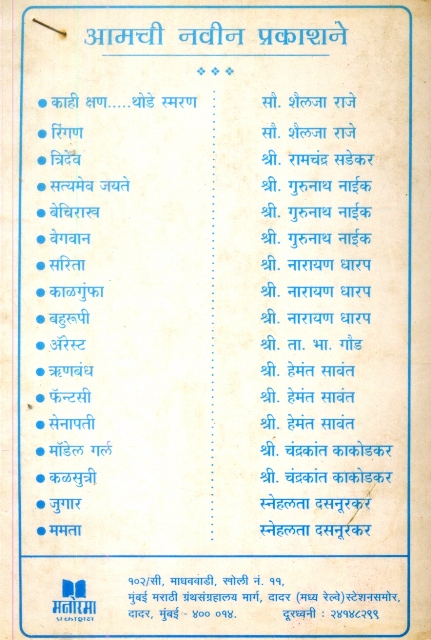 आमची नवीन प्रकाशने
काही क्षण.....थोडे स्मरण : सौ. शैलजा राजे
रिंगण : सौ. शैलजा राजे
त्रिदेव : श्री. रामचंद्र सडेकर
सत्यमेव जयते : श्री. गुरुनाथ नाईक
बेचिराख : श्री. गुरुनाथ नाईक
वेगवान : श्री. गुरुनाथ नाईक
सरिता : श्री. नारायण धारप
काळगुंफा : श्री. नारायण धारप
बहुरूपी : श्री. नारायण धारप
ॲरेस्ट : श्री. ता. भा. गौड
ऋणबंध : श्री. हेमंत सावंत
फॅन्टसी : श्री. हेमंत सावंत
सेनापती : श्री. हेमंत सावंत
मॉडेल गर्ल : श्री. चंद्रकांत काकोडकर
कळसुत्री : श्री. चंद्रकांत काकोडकर
जुगार : स्नेहलता दसनूरकर
ममता : स्नेहलता दसनूरकर
मनोरमा
प्रकाशन
१०२/सी, माधववाडी, खोली नं. ११,
मुंबई मराठी ग्रंथसंग्रहालय मार्ग, दादर (मध्य रेल्वे) स्टेशनसमोर,
दादर, मुंबई - ४०० ०१४. दूरध्वनी : २४१४८२९९